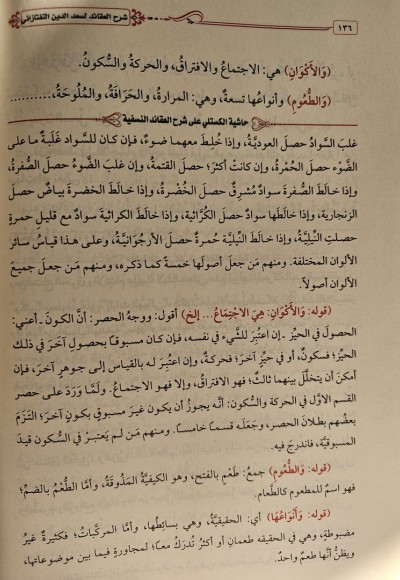 ١٣٦
شرح العقائد لسعد الدين التفتازاني
(وَالأَكْوَانِ) هي: الاجتماعُ والافتراقُ، والحركةُ والسُّكونُ.
(وَالطُّعُومِ) وأنواعُها تسعةٌ، وهي: المرارةُ، والحَرَافَةُ، والمُلُوحَةُ، ..........
حاشية الكستلي على شرح العقائد النسفية
غلبَ السَّوادُ حصلَ العوديَّةُ، وإذا خُلِطَ معهما ضوءٌ، فإن كان للسَّوادِ غَلَبةٌ ما على
الضَّوْءِ حصلَ الحُمْرةُ، وإن كانت أكثرَ؛ حصلَ القتمةُ، وإن غلبَ الضَّوءُ حصلَ الصُّفرةُ،
وإذا خالطَ الصُّفرةَ سوادٌ مُشرِقٌ حصلَ الخُضْرةُ، وإذا خالطَ الخضرةَ بياضٌ حصلَ
الزنجارية، وإذا خالطَها سوادٌ حصلَ الكُرَّاثية، وإذا خالطَ الكراثيةَ سوادٌ مع قليلِ حمرةٍ
حصلتِ النِّيليَّةُ، وإذا خالطَ النِّيليَّةَ حُمرةٌ حصلَ الأرجُوَانيَّةُ، وعلى هذا قياسُ سائرِ
الألوان المختلفة. ومنهم مَن جعلَ أصولَها خمسةً كما ذكره، ومنهم مَن جعلَ جميعَ
الألوان أصولاً.
(قوله: وَالأَكْوَانِ: هِيَ الاجْتِمَاعُ... إلخ) أقول: ووجهُ الحصر: أنَّ الكونَ ـ أعني:
الحصولَ في الحيِّز ـ إن اعتُبِرَ للشَّيء في نفسه، فإن كان مسبوقًا بحصولٍ آخرَ في ذلك
الحيِّز؛ فسكونٌ، أو في حيِّزٍ آخرَ؛ فحركةٌ، وإن اعتُبِرَ له بالقياس إلى جوهرٍ آخرَ، فإن
أمكنَ أن يتخلَّلَ بينهما ثالثٌ؛ فهو الافتراقُ، وإلا فهو الاجتماعُ. ولَمَّا وَرَدَ على حصر
القسم الأوَّل في الحركة والسُّكون: أنَّه يجوزُ أن يكونَ غيرَ مسبوقٍ بكونٍ آخرَ؛ التزَمَ
بعضُهم بطلانَ الحصر، وجَعَلَه قسمًا خامسًا. ومنهم مَن لم يَعتبرْ في السُّكون قيدَ
المسبوقيَّة، فاندرجَ فيه.
(قوله: وَالطُّعُومِ) جمعُ: طَعْم بالفتح، وهو الكيفيَّةُ المَذُوقَةُ، وأمَّا الطُّعْمُ بالضمِّ؛
فهو اسمٌ للمطعوم كالطَّعام.
(قوله: وَأَنوَاعُهَا) أي: الحقيقيَّة، وهي بسائطُها، وأمَّا المركَّباتُ؛ فكثيرةٌ غيرُ
مضبوطةٍ، وهي في الحقيقة طعمانِ أو أكثرُ تُدرَكُ معًا؛ لمجاورةٍ فيما بين موضوعاتها،
ويظنُّ أنَّها طعمٌ واحدٌ.